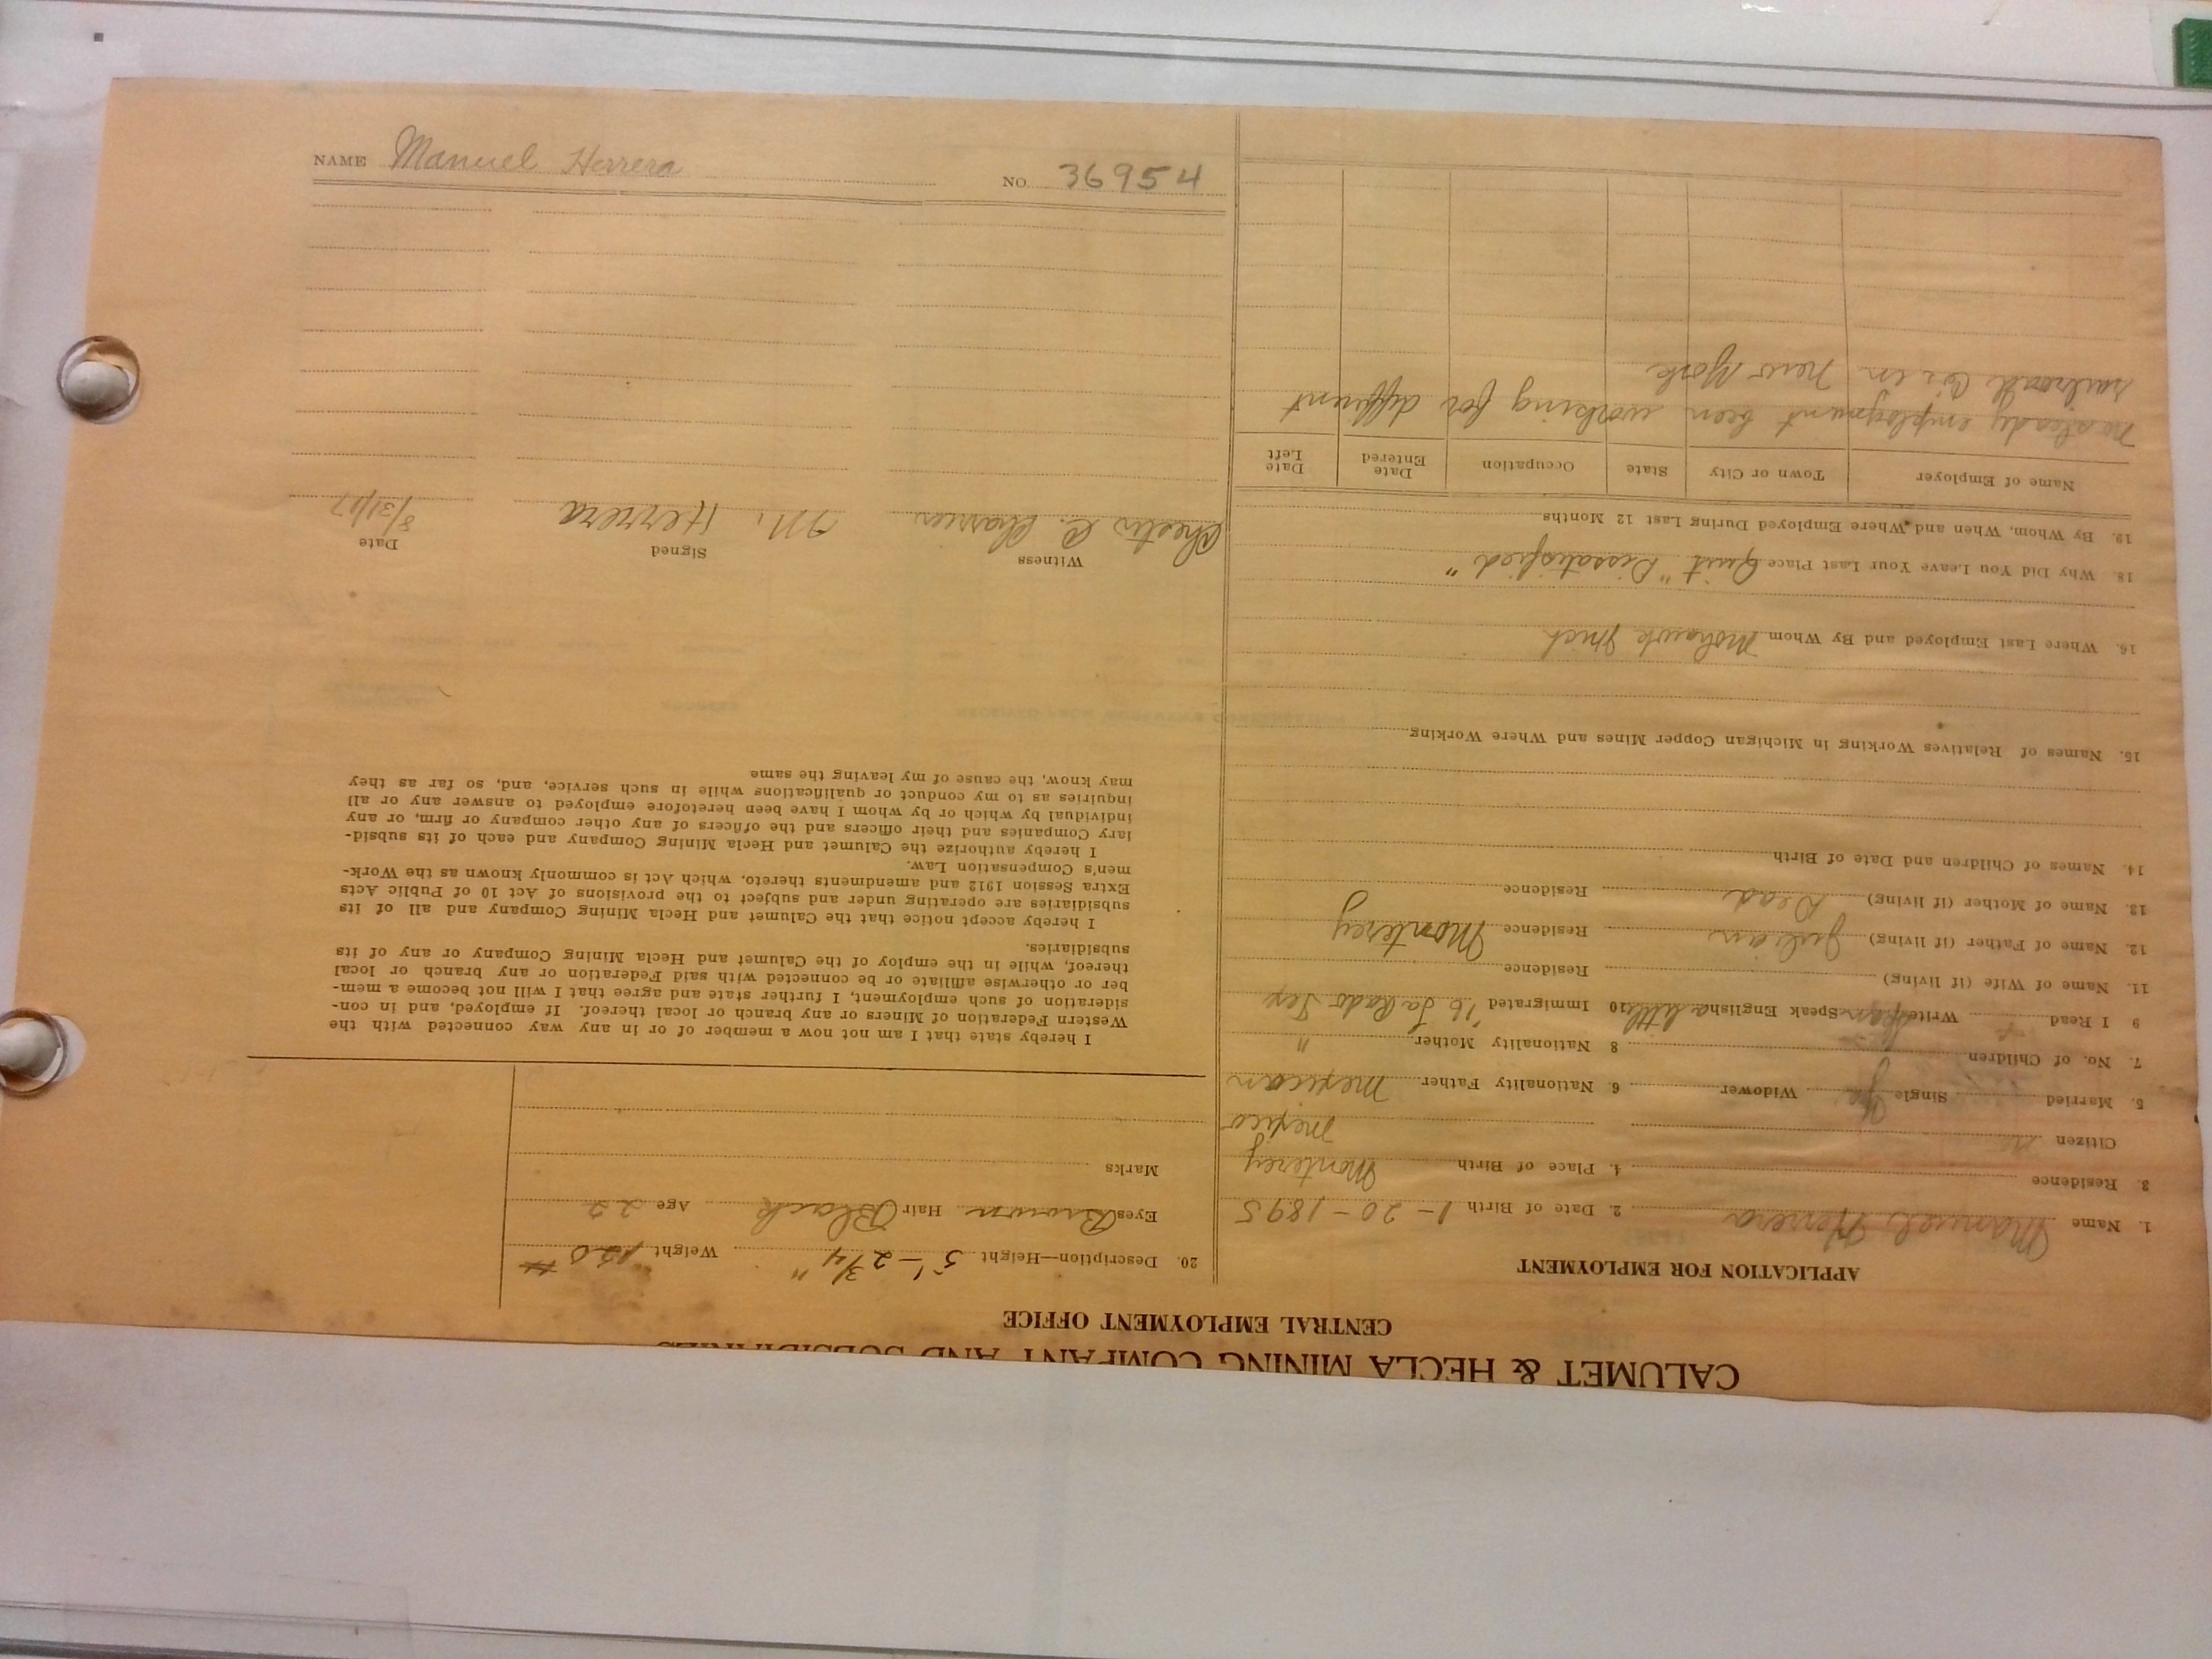 NAME Manuel Herrera NO. 36954
CALUMET & HECLA MINING COMPANY AND SUBSIDIARIES
CENTRAL EMPLOYMENT OFFICE
APPLICATION FOR EMPLOYMENT
1. Name Manuel Herrera 2. Date of Birth 1-20-1895
3. Residence 4. Place of Birth Monterey
Citizen no Mexico
5. Married Single Yes Widower 6. Nationality Father Mexican
7. No. of Children 8 Nationality Mother "
9 I Read Write Speak English a little 10 Immigrated '16 Laredo Tex
11. Name of Wife (if living) Residence
12. Name of Father (if living) Julian Residence Monterey
13. Name of Mother (if living) Dead Residence
14. Names of Children and Date of Birth
15. Names of Relatives Working in Michigan Copper Mines and Where Working
16. Where Last Employed and By Whom Mohawk Mich
18. Why Did You Leave Your Last Place Quit "Dissatisfied"
19. By Whom, When and Where Employed During Last 12 Months
Name of Employer Town or City State Occupation Date Entered Date Left
no steady employment been working for different
railroad Co's in New York
20. Description—Height 5'-2 3/4" Weight 120 #
Eyes Brown Hair Black Age 22
Marks
I hereby state that I am not now a member of or in any way connected with the
Western Federation of Miners or any branch or local thereof. If employed, and in con-
sideration of such employment, I further state and agree that I will not become a mem-
ber or otherwise affiliate or be connected with said Federation or any branch or local
thereof, while in the employ of the Calumet and Hecla Mining Company or any of its
subsidiaries.
I hereby accept notice that the Calumet and Hecla Mining Company and all of its
subsidiaries are operating under and subject to the provisions of Act 10 of Public Acts
Extra Session 1912 and amendments thereto, which Act is commonly known as the Work-
men's Compensation Law.
I hereby authorize the Calumet and Hecla Mining Company and each of its subsid-
iary Companies and their officers and the officers of any other company or firm, or any
individual by which or by whom I have been heretofore employed to answer any or all
inquiries as to my conduct or qualifications while in such service, and, so far as they
may know, the cause of my leaving the same
Witness Signed Date
M. Herrera 8/31/17